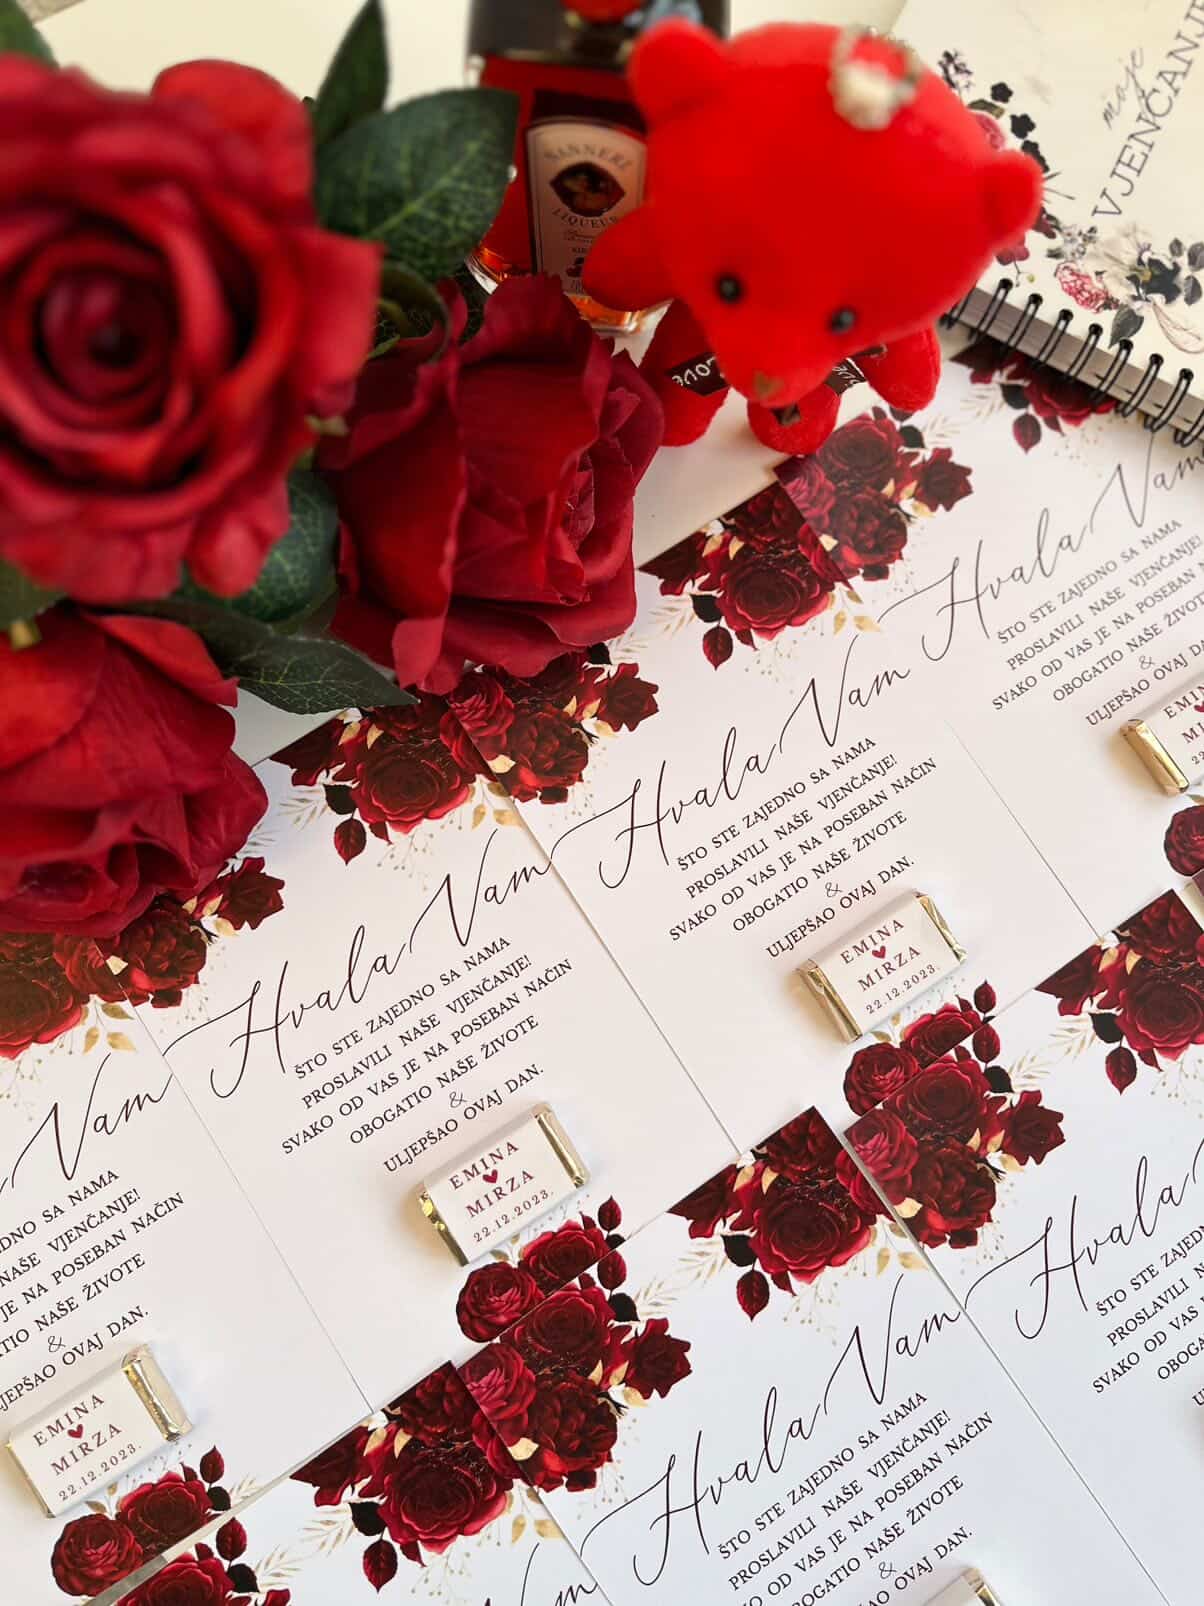 SANNERZ
LIQUEUR
LOVE
moje
VJENČANJE
Hvala Vam
ŠTO STE ZAJEDNO SA NAMA
PROSLAVILI NAŠE VJENČANJE!
SVAKO OD VAS JE NA POSEBAN NAČIN
OBOGATIO NAŠE ŽIVOTE
&
ULJEPŠAO OVAJ DA
EMIN
MI
22
Hvala Vam
ŠTO STE ZAJEDNO SA NAMA
PROSLAVILI NAŠE VJENČANJE!
SVAKO OD VAS JE NA POSEBAN NAČIN
OBOGATIO NAŠE ŽIVOTE
&
ULJEPŠAO OVAJ DAN.
EMINA
MIRZA
22.12.2023.
Hvala Vam
ŠTO STE ZAJEDNO SA NAMA
PROSLAVILI NAŠE VJENČANJE!
SVAKO OD VAS JE NA POSEBAN NAČIN
OBOGATIO NAŠE ŽIVOTE
&
ULJEPŠAO OVAJ DAN.
EMINA
MIRZA
22.12.2023.
Vam
DNO SA NAMA
NAŠE VJENČANJE!
JE NA POSEBAN NAČIN
ATIO NAŠE ŽIVOTE
&
LJEPŠAO OVAJ DAN.
EMINA
MIRZA
22.12.2023.
Hvala
ŠTO STE ZAJED
PROSLAVILI
SVAKO OD VAS
OBOGA
Hvala Vam
ŠTO STE ZAJEDNO SA NAMA
PROSLAVILI NAŠE VJENČANJE!
SVAKO OD VAS JE NA POSEBAN NAČIN
OBOGATIO NAŠE ŽIVOTE
&
ULJEPŠAO OVAJ DAN.
Vam